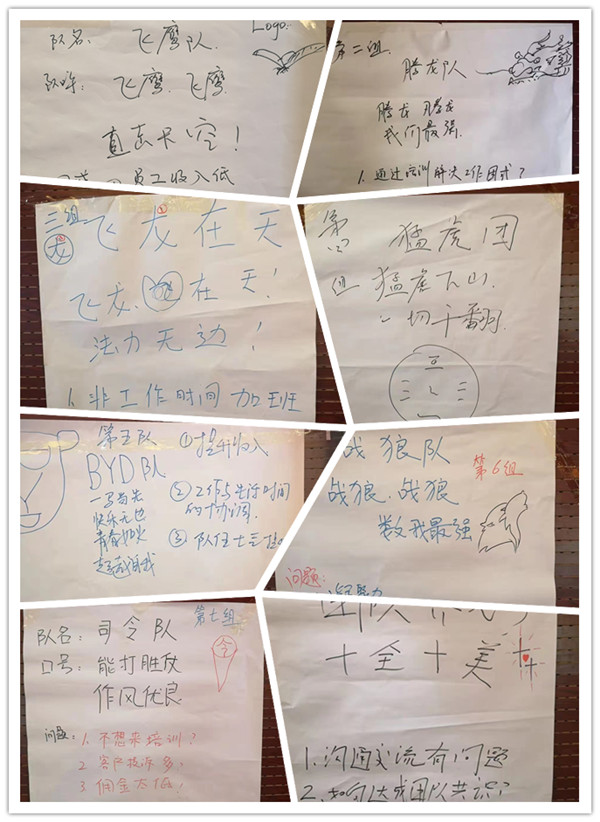 队名: 飞鹰队.
Logo:
队呼: 飞鹰. 飞鹰.
直击长空!
员工收入低
第二组
腾龙队
腾龙 腾龙
我们最强.
1. 通过培训解决工作困或?
三组
龙
①
飞龙在天
飞龙. 在天!
法力无边!
1. 非工作时间加班
第四组
猛虎团
猛虎下山.
一切干翻.
第五队
BYD队
一马当先
快乐无比
青春如火
超越自我
①提升收入
②工作与生活时间
的协调.
③队伍士气
战狼队
第6组
战狼. 战狼
数我最强
问题:
凝聚力
第七组
队名: 司令队
口号: 能打胜仗
作风优良
令
问题: 1. 不想来培训?
2. 客户投诉多!
3 佣金太低!
团队
十全十美
1. 沟通交流有问题
2. 如何达成团队共识?